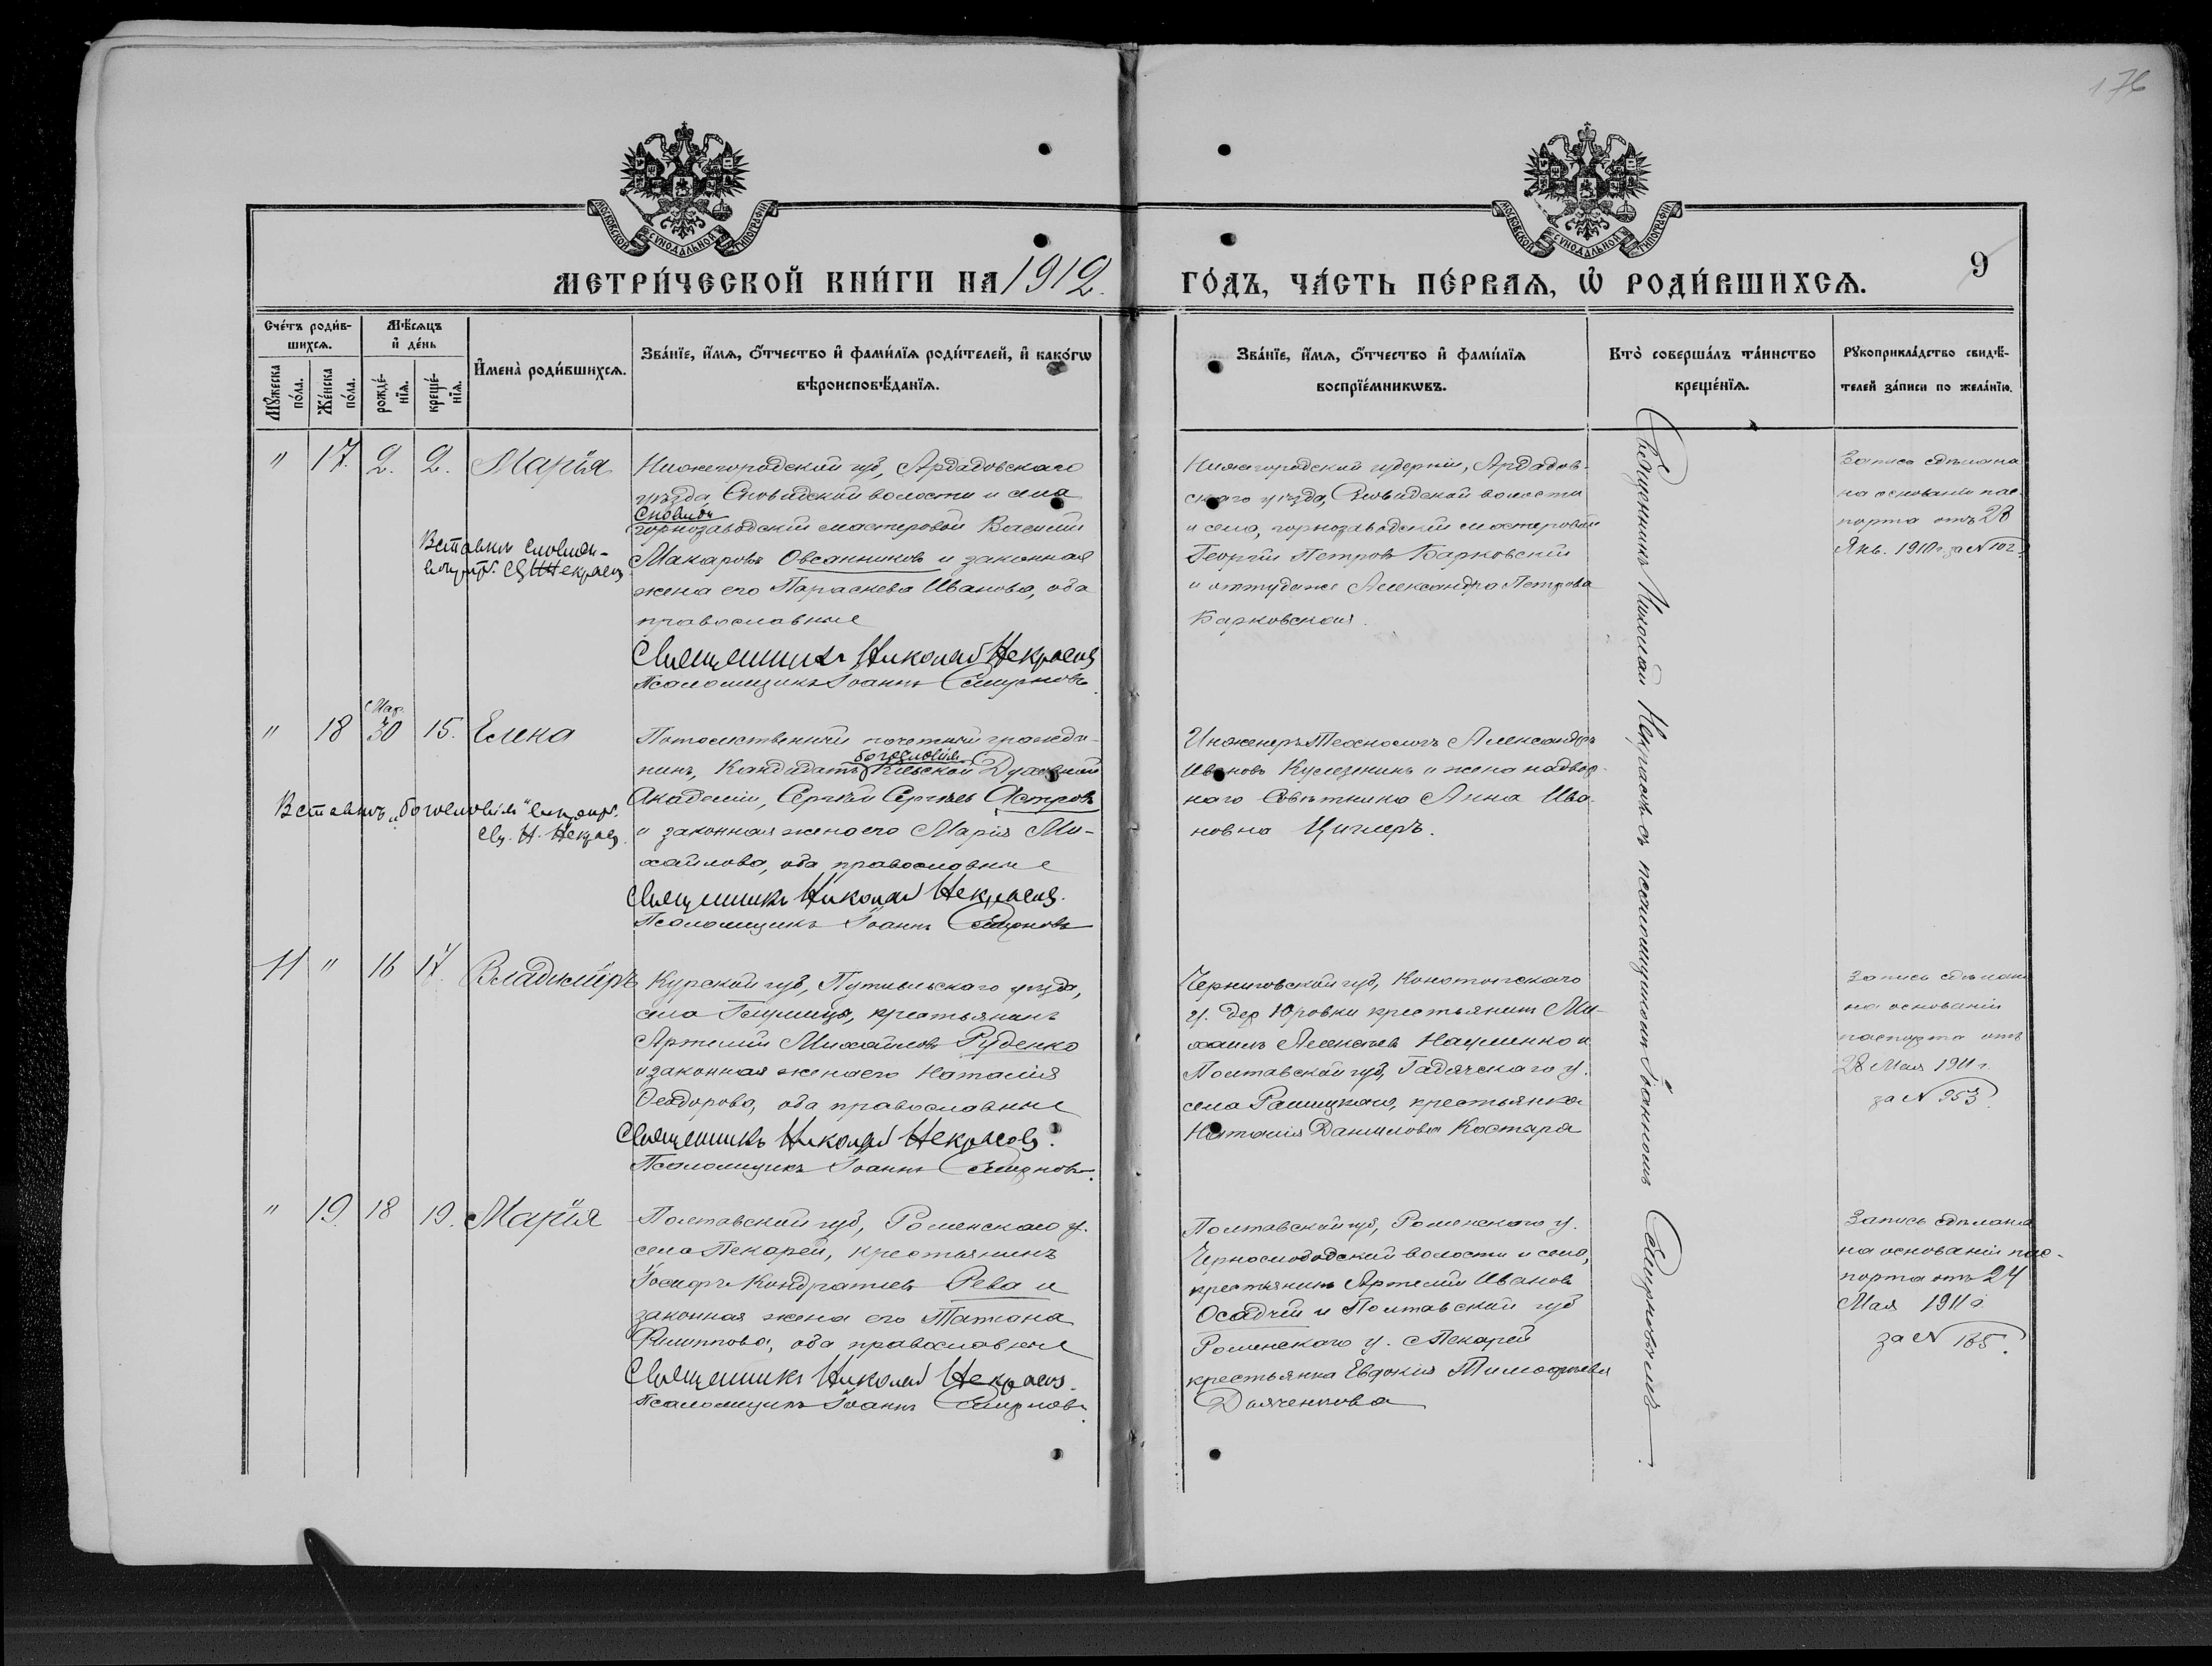 176
МОСКОВСКОЙ СУНОДАЛЬНОЙ ТИПОГРАФІИ
МОСКОВСКОЙ СУНОДАЛЬНОЙ ТИПОГРАФІИ
МЕТРИ́ЧЕСКОЙ КНИ́ГИ НА 1912.
ГО́ДЪ, ЧА́СТЬ ПЕ́РВАѦ, Ѡ҆ РОДИ́ВШИХСѦ.
9
Сче́тъ роди́вшихсѧ.
Мꙋ́жеска по́ла.
Же́нска по́ла.
Мѣ́сѧцъ и҆ де́нь
рожде́нїѧ.
креще́нїѧ.
И҆мена̀ роди́вшихсѧ.
Зва́нїе, и҆́мѧ, ѻ҆́тчество и҆ фами́лїѧ роди́телей, и҆ како́гѡ
вѣроисповѣ́данїѧ.
Зва́нїе, и҆́мѧ, ѻ҆́тчество и҆ фами́лїѧ
воспрїе́мникѡвъ.
Кто̀ соверша́лъ та́инство
креще́нїѧ.
Рꙋкоприкла́дство свидѣ́-
телей за́писи по жела́нїю.
" 17. 2. 2. Марія
Нижегородской губ, Ардадовскаго
уѣзда Сноведской волости и села
Сноведи
горнозаводскій мастеровой Василій
Макаровъ Овсянниковъ и законная
жена его Параскева Иванова, оба
православные
Священникъ Николай Некрасов
Псаломщикъ Іоаннъ Смирновъ.
Нижегородской губерніи, Ардадов-
скаго уѣзда, Сноведской волости
и села, горнозаводскій мастеровой
Георгій Петровъ Барковскій
и оттудаже Александра Петрова
Барковская.
Запись сдѣлана
на основаніи пас-
порта отъ 28
Янв. 1910 г. за № 102.
Священникъ Николай Некрасовъ съ псаломщикомъ Іоанномъ Смирновымъ.
" 18 Мар. 30 15. Елена
Потомственный почетный гражда-
нинъ, Кандидатъ богословія Кіевской Духовной
Академіи, Сергѣй Сергѣевъ Астровъ
и законная жена его Марія Ми-
хайлова, оба православные
Вставкѣ „богословія"
Св. Н. Некрасов
Священникъ Николай Некрасов.
Псаломщикъ Іоаннъ Смирновъ
Инженеръ Технологъ Александръ
Ивановъ и жена надвор-
наго Совѣтника Анна Ива-
новна Циглеръ.
11 " 16 17. Владиміръ
Курской губ, Путивльскаго уѣзда,
села крестьянинъ
Артемій Михайловъ Руденко
и законная жена его Наталія
Ѳеодорова, оба православные
Священникъ Николай Некрасовъ.
Псаломщикъ Іоаннъ Смирновъ.
Черниговской губ, Конотопскаго
у. дер Юровки крестьянинъ Ми-
хаилъ Алексѣевъ Науменко и
Полтавской губ, Гадячскаго у.
села крестьянка
Наталія Данилова
Запись сдѣлана
на основаніи
паспорта отъ
28 Мая 1911 г.
за № 953.
" 19. 18 19. Марія
Полтавской губ, Роменскаго у.
села Пекарей, крестьянинъ
Іосифъ Кондратіевъ Рева и
законная жена его Татіана
Филиппова, оба православные
Священникъ Николай Некрасов.
Псаломщикъ Іоаннъ Смирновъ.
Полтавской губ, Роменскаго у.
Чернослободской волости и села,
крестьянинъ Артемій Ивановъ
Осадчій и Полтавской губ
Роменскаго у. с Пекарей
крестьянка Евдокія Тимофѣева
Дьяченкова
Запись сдѣлана
на основаніи пас-
порта отъ 24
Мая 1911 г.
за № 185.